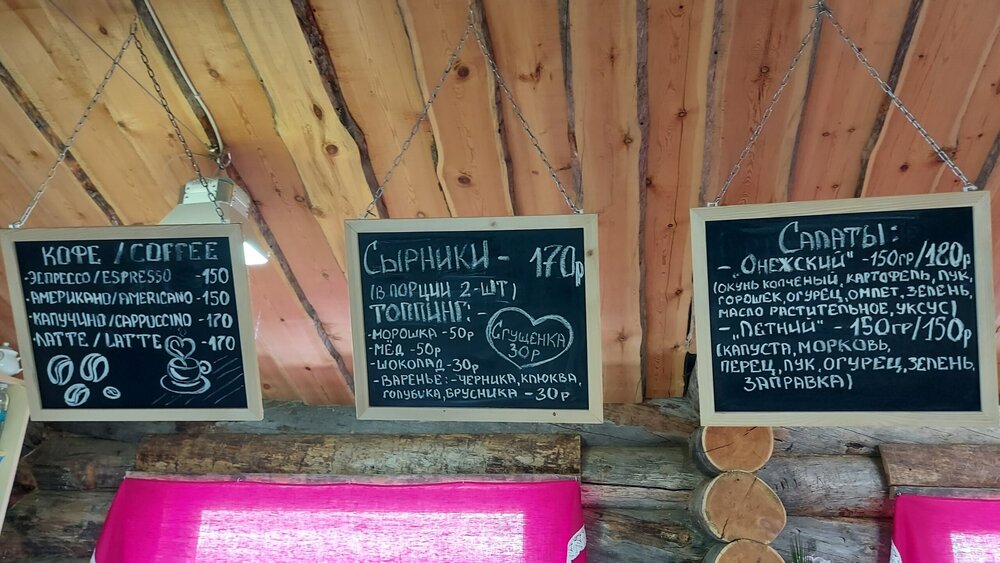 КОФЕ / COFFEE
-ЭСПРЕССО/ESPRESSO -150
-АМЕРИКАНО/AMERICANO -150
-КАПУЧИНО/CAPPUCCINO -170
-ЛАТТЕ/LATTE -170
СЫРНИКИ - 170р
(В ПОРЦИИ 2-ШТ)
ТОППИНГ:-
-МОРОШКА -50р
-МЁД -50р
-ШОКОЛАД -30р
-ВАРЕНЬЕ:-ЧЕРНИКА,КЛЮКВА,
ГОЛУБИКА,БРУСНИКА -30р
СГУЩЕНКА
30р
САЛАТЫ:
- "ОНЕЖСКИЙ" -150гр/180р
(ОКУНЬ КОПЧЕНЫЙ, КАРТОФЕЛЬ, ЛУК,
ГОРОШЕК, ОГУРЕЦ, ОМЛЕТ, ЗЕЛЕНЬ,
МАСЛО РАСТИТЕЛЬНОЕ, УКСУС)
- "ЛЕТНИЙ" - 150гр/150р
(КАПУСТА, МОРКОВЬ,
ПЕРЕЦ, ЛУК, ОГУРЕЦ, ЗЕЛЕНЬ,
ЗАПРАВКА)